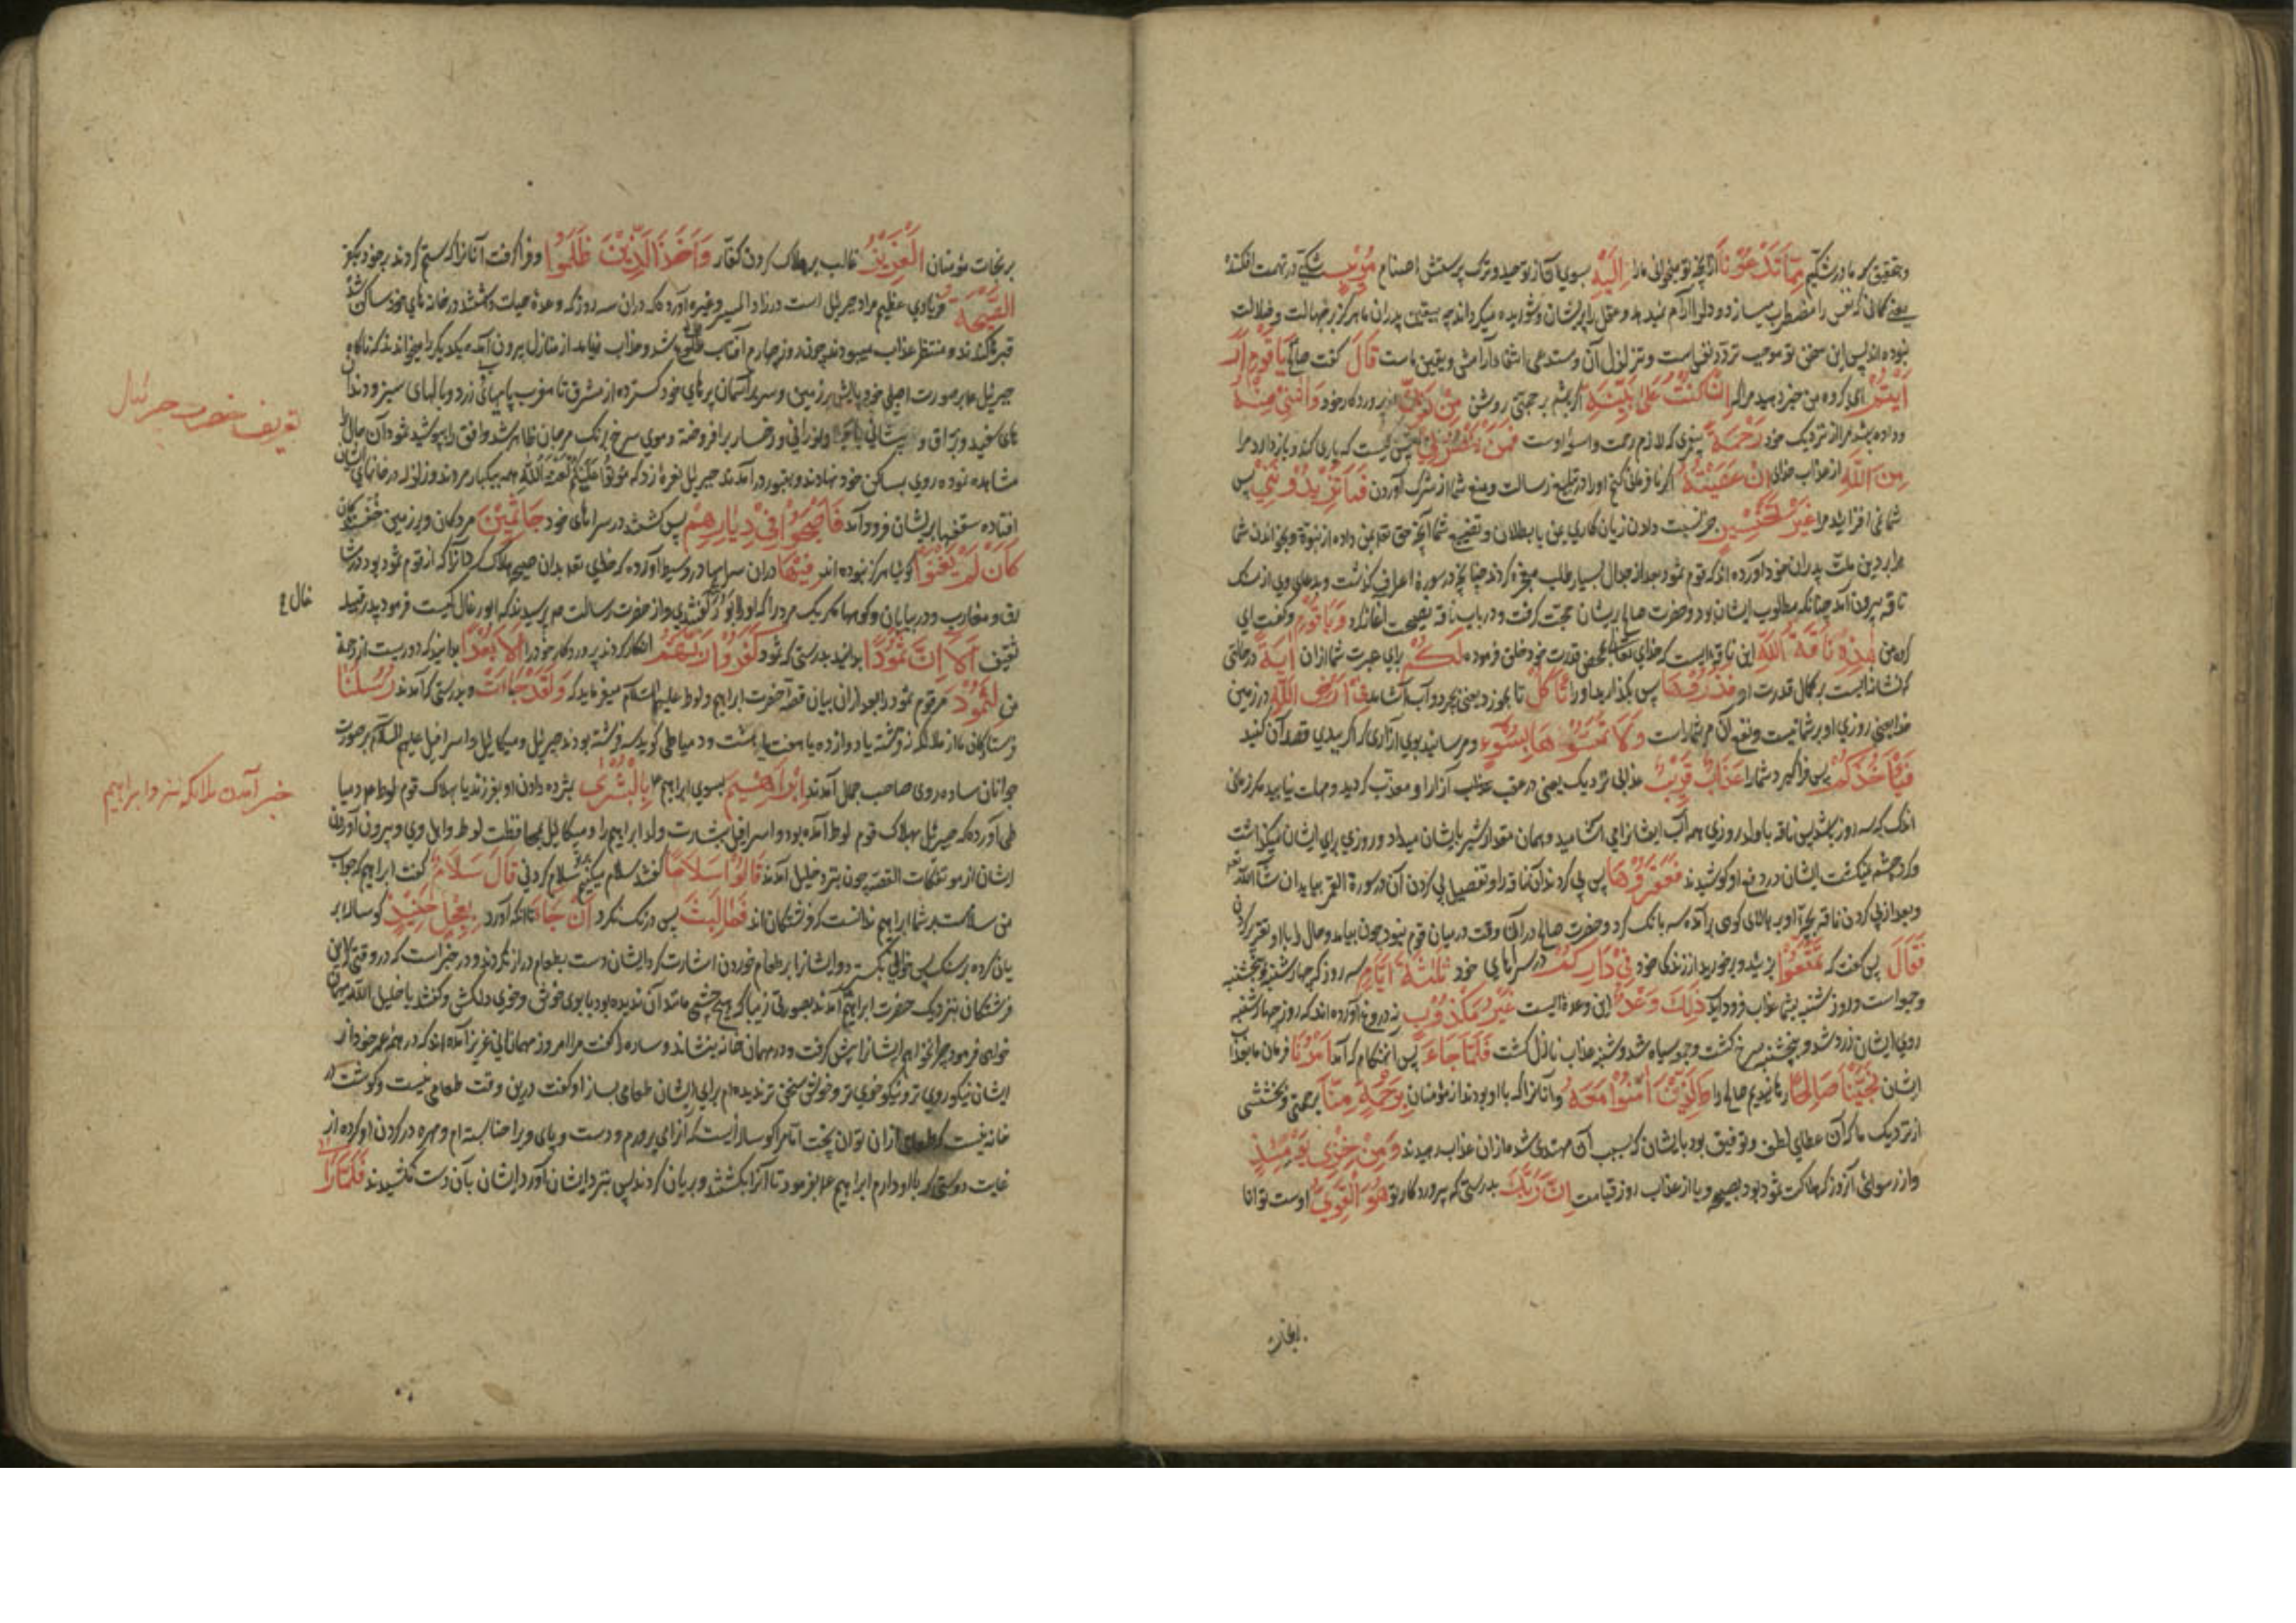 وبتحقیق که ما در شکیم مِمَّا تَدْعُونَا از آنچه تو میخوانی ما را اِلَیْهِ بسوی آن از توحید و ترک پرستش اصنام مُرِیْبٍ شکی در تهمت افکننده
یعنی کمانی که نفس را مضطرب میسازد و دل را آرام نمیدهد و عقل را پریشان و شوریده میکرداند چه بیقین پدران ما هرکز بر جهالت و ضلالت
نبوده اند پس این سخن تو موجب تردد نفوس است و تزلزل آن و مستدعی اشقا دآرامش و یقین ماست قَالَ کفت صالح یَا قَوْمِ اَرَ
اَیْتُمْ ای کروه من خبر دهید مرا که اِنْ کُنْتُ عَلٰی بَیِّنَةٍ اکر باشم بر حجتی روشن مِنْ رَبِّی از پروردکار خود وَاٰتٰنِیْ مِنْهُ
و داده باشد مرا از نزدیک خود رَحْمَةً پیغمبری که لازم رحمت و اسؤ اوست فَمَنْ یَنْصُرُنِیْ پس کیست که یاری کند و بازدارد مرا
مِنَ اللّٰهِ از عذاب خدای اِنْ عَصَیْتُهُ اکر نافرمانی کنم او را در تبلیغ رسالت و منع شما از شرک آوردن فَمَا تَزِیْدُوْنَنِیْ پس
شما نمی افزایید مرا غَیْرَ تَخْسِیْرٍ جز نسبت دادن زیان کاری بمن یا بطلان و تضییع شما آنچه حق تعالی بمن داده از نبوة و بخواندن شما
مرا بر دین ملت پدران خود آورده اند که قوم ثمود بعد از جدال بسیار طلب معجزه کردند چنانچه در سورة اعراف کذشت و بدعای وی از سنک
ناقه بیرون آمد چنانکه مطلوب ایشان بود و حضرت صالح بریشان حجت کرفت و در باب ناقه نصیحت آغاز کرد وَیَا قَوْمِ و کفت ای
کروه من هٰذِهِ نَاقَةُ اللّٰهِ این ناقه ایست که خدای تعالی بمحض قدرت خود خلق فرموده لَکُمْ برای عبرت شما از ان اٰیَةً در حالتی
که نشانه ایست بر کمال قدرت او فَذَرُوْهَا پس بکذارید او را تَأْکُلْ تا بخورد یعنی بچرد و آب آشامد فِیْ اَرْضِ اللّٰهِ در زمین
خدا یعنی روزی او بر شما نیست و نفع آن مر شماراست وَلَا تَمَسُّوْهَا بِسُوْءٍ و مرسانید بوی آزاری که اکر ببدی قصد آن کنید
فَیَأْخُذَکُمْ پس فراکیرد شما را عَذَابٌ قَرِیْبٌ عذابی نزدیک یعنی در عقب عذاب آزار او معذب کردید و مهلت نیابید مکر زمانی
اندک که سه روز باشد پس ناقه با ولد روزی همه آب ایشانرا می آشامید و همان مقدار شیر بایشان میداد و روزی برای ایشان میکذاشت
و کرد چشمه نمیکشت ایشان در دفع او کوشیدند فَعَقَرُوْهَا پس پی کردند آن ناقه را و تفصیل پی کردن آن در سورة القمر بیاید ان شاء الله
و بعد از پی کردن ناقه بچۀ او بر بالای کوهی برآمده سه بانک کرد و حضرت صالح در ان وقت در میان قوم نبود چون بیامد و حال را با او تقریر کردن
فَقَالَ پس کفت که تَمَتَّعُوْا بزئید و برخورید از زندکی خود فِیْ دَارِکُمْ در سراهای خود ثَلٰثَةَ اَیَّامٍ سه روز که چهارشنبه و پنجشنبه
و جمعه است و روز شنبه بشما عذاب فرود آید ذٰلِکَ وَعْدٌ این وعده ایست غَیْرُ مَکْذُوْبٍ نه دروغ آورده اند که روز چهارشنبه
روی ایشان زرد شد و پنجشنبه سرخ کشت و جمعه سیاه شد و شنبه عذاب نازل کشت فَلَمَّا جَاءَ پس آنهنکام که آمد اَمْرُنَا فرمان ما بعذاب
ایشان نَجَّیْنَا صَالِحًا رهانیدیم صالح را وَالَّذِیْنَ اٰمَنُوْا مَعَهُ و آنانرا که با او بودند از مؤمنان بِرَحْمَةٍ مِنَّا برحمتی و بخششی
از نزدیک ما که آن عطای لطف و توفیق بود بایشان که بسبب آن مهتدی شده از ان عذاب رهیدند وَمِنْ خِزْیِ یَوْمِئِذٍ
و از رسوائی آنروز که هلاکت ثمود بود بصیحه و یا از عذاب روز قیامت اِنَّ رَبَّکَ بدرستی که پروردکار تو هُوَ الْقَوِیُّ اوست توانا
برنجات
بر نجات مؤمنان الْعَزِیْزُ غالب بر هلاک کردن کفار وَاَخَذَ الَّذِیْنَ ظَلَمُوْا و فراکرفت آنانرا که ستم کردند بر خود بکفر
الصَّیْحَةُ فریادی عظیم مراد جبرئیل است در زاد المسیر و غیره آورده که در ان سه روز که وعدۀ حیات داشتند در خانه های خود ساکن شد
قبرها کندند و منتظر عذاب میبودند چون روز چهارم آفتاب طلوع شد و عذاب نیامد از منازل بیرون آمده یکدیکر را میخواندند که ناکاه
جبرئیل م بر صورت اصلی خود پایش بر زمین و سر بر آسمان پرهای خود کسترده از مشرق تا مغرب پایهائی زرد و بالهای سبز و دندان
های سفید و براق و پیشانی با جلا و نورانی و رخسار برافروخته و موی سرخ برنک مرجان ظاهر شد و افق را بپوشید ثمود آن حال را
مشاهده نموده روی بمساکن خود نهادند و بقبور درآمدند جبرئیل نعره زد که موتوا علیکم لعنة الله همه بیکبار مردند و زلزله در خانهای ایشان
افتاده سقفها بر ایشان فرود آمد فَاَصْبَحُوْا فِیْ دِیَارِهِمْ پس کشتند در سراهای خود جَاثِمِیْنَ مردکان و بر زمین خفتکان
کَاَنْ لَمْ یَغْنَوْا کوئیا هرکز نبوده اند فِیْهَا دران سراها و در وسیط آورده که خدای تعالی بدان صیحه هلاک کردانید آنرا که از قوم ثمود بود در مشا
رق و مغارب و در بیابان و کوهها مکر یک مرد را که او را ابو رغال کفتندی و از حضرت رسالت ص پرسیدند که ابو رغال کیست فرمود پدر قبیله
خال ع
ثقیف اَلَا اِنَّ ثَمُوْدًا بدانید بدرستی که ثمود کَفَرُوْا رَبَّهُمْ انکار کردند پروردکار خود را اَلَا بُعْدًا بدانید که دوریست از رحمة
من لِثَمُوْدَ مر قوم ثمود را بعد ازان بیان قصۀ حضرت ابراهیم و لوط علیهم السلام میفرماید که وَلَقَدْ جَاءَتْ و بدرستی که آمدند رُسُلُنَا
فرستادکان ما از ملائکه نه فرشته یا دوازده یا هفت یا هشت و دمیاطی کوید سه فرشته بودند جبرئیل و میکائیل و اسرافیل علیهم السلام بر صورت
جوانان ساده روی صاحب جمال آمدند اِبْرَاهِیْمَ بسوی ابراهیم ع بِالْبُشْرٰی بمژده دادن او بفرزند یا بهلاک قوم لوط م و دمیا
طی آورده که جبرئیل بهلاک قوم لوط آمده بود و اسرافیل ببشارت ولد ابراهیم را و میکائیل بمحافظت لوط و اهل وی و بیرون آوردن
ایشان از مؤتفکات القصه چون بنزد خلیل آمدند قَالُوْا سَلَامًا کفتند سلام میکنیم بر تو سلام کردنی قَالَ سَلَامٌ کفت ابراهیم که جواب
من سلامست بر شما ابراهیم ندانست که فرشتکان اند فَمَا لَبِثَ پس درنک نکرد اَنْ جَاءَ تا آنکه آورد بِعِجْلٍ حَنِیْذٍ کوساله بر
یان کرده بر سنک پس خوانی بکسترد و ایشانرا بر طعام خوردن اشارت کرد ایشان دست بطعام دراز نکردند و در خبر است که در وقتی که این
فرشتکان بنزدیک حضرت ابراهیم آمدند بصورتی زیبا که هیچ چشمی مانند آن ندیده بود با بوی خوش و خوی دلکش و کفتند یا خلیل الله مهمان
خواهی فرمود چرا نخواهم ایشانرا پیش کرفت و در مهمان خانه بنشاند و ساره را کفت مرا امروز مهمانانی عزیز آمده اند که در همه عمر خود از
ایشان نیکو روی تر و نیکو خوی تر و خوش سخن تر ندیده ام برای ایشان طعامی بساز او کفت درین وقت طعامی نیست و کوشت در
خانه نیست که طعامی ازان توان پخت اما مرا کوساله ایست که آنرا می پرورم و دست و پای ویرا حنا بسته ام و مهره در کردن او کرده از
غایت دوستی که با او دارم ابراهیم ع بفرمود تا آنرا بکشتند و بریان کردند پس بنزد ایشان آورد ایشان بآن دست نکشیدند فَلَمَّا رَاٰ
تعریف حضرت جبرئیل
خبر آمدن ملائکه نزد ابراهیم